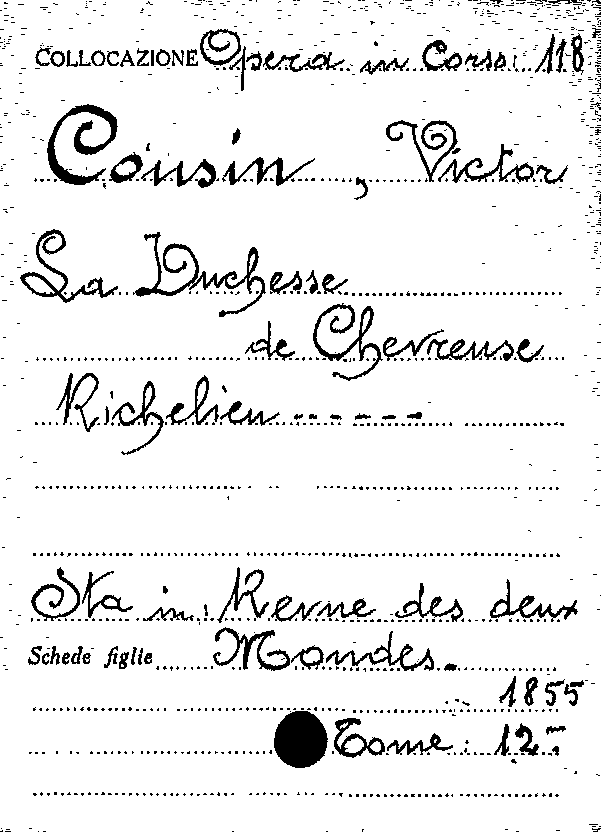 COLLOCAZIONE Opera in Corso: 118
Cousin, Victor
La Duchesse
de Chevreuse
Richelieu ------
Sta in: Revue des deux
Schede figlie Mondes.
1855
Tome: 12-